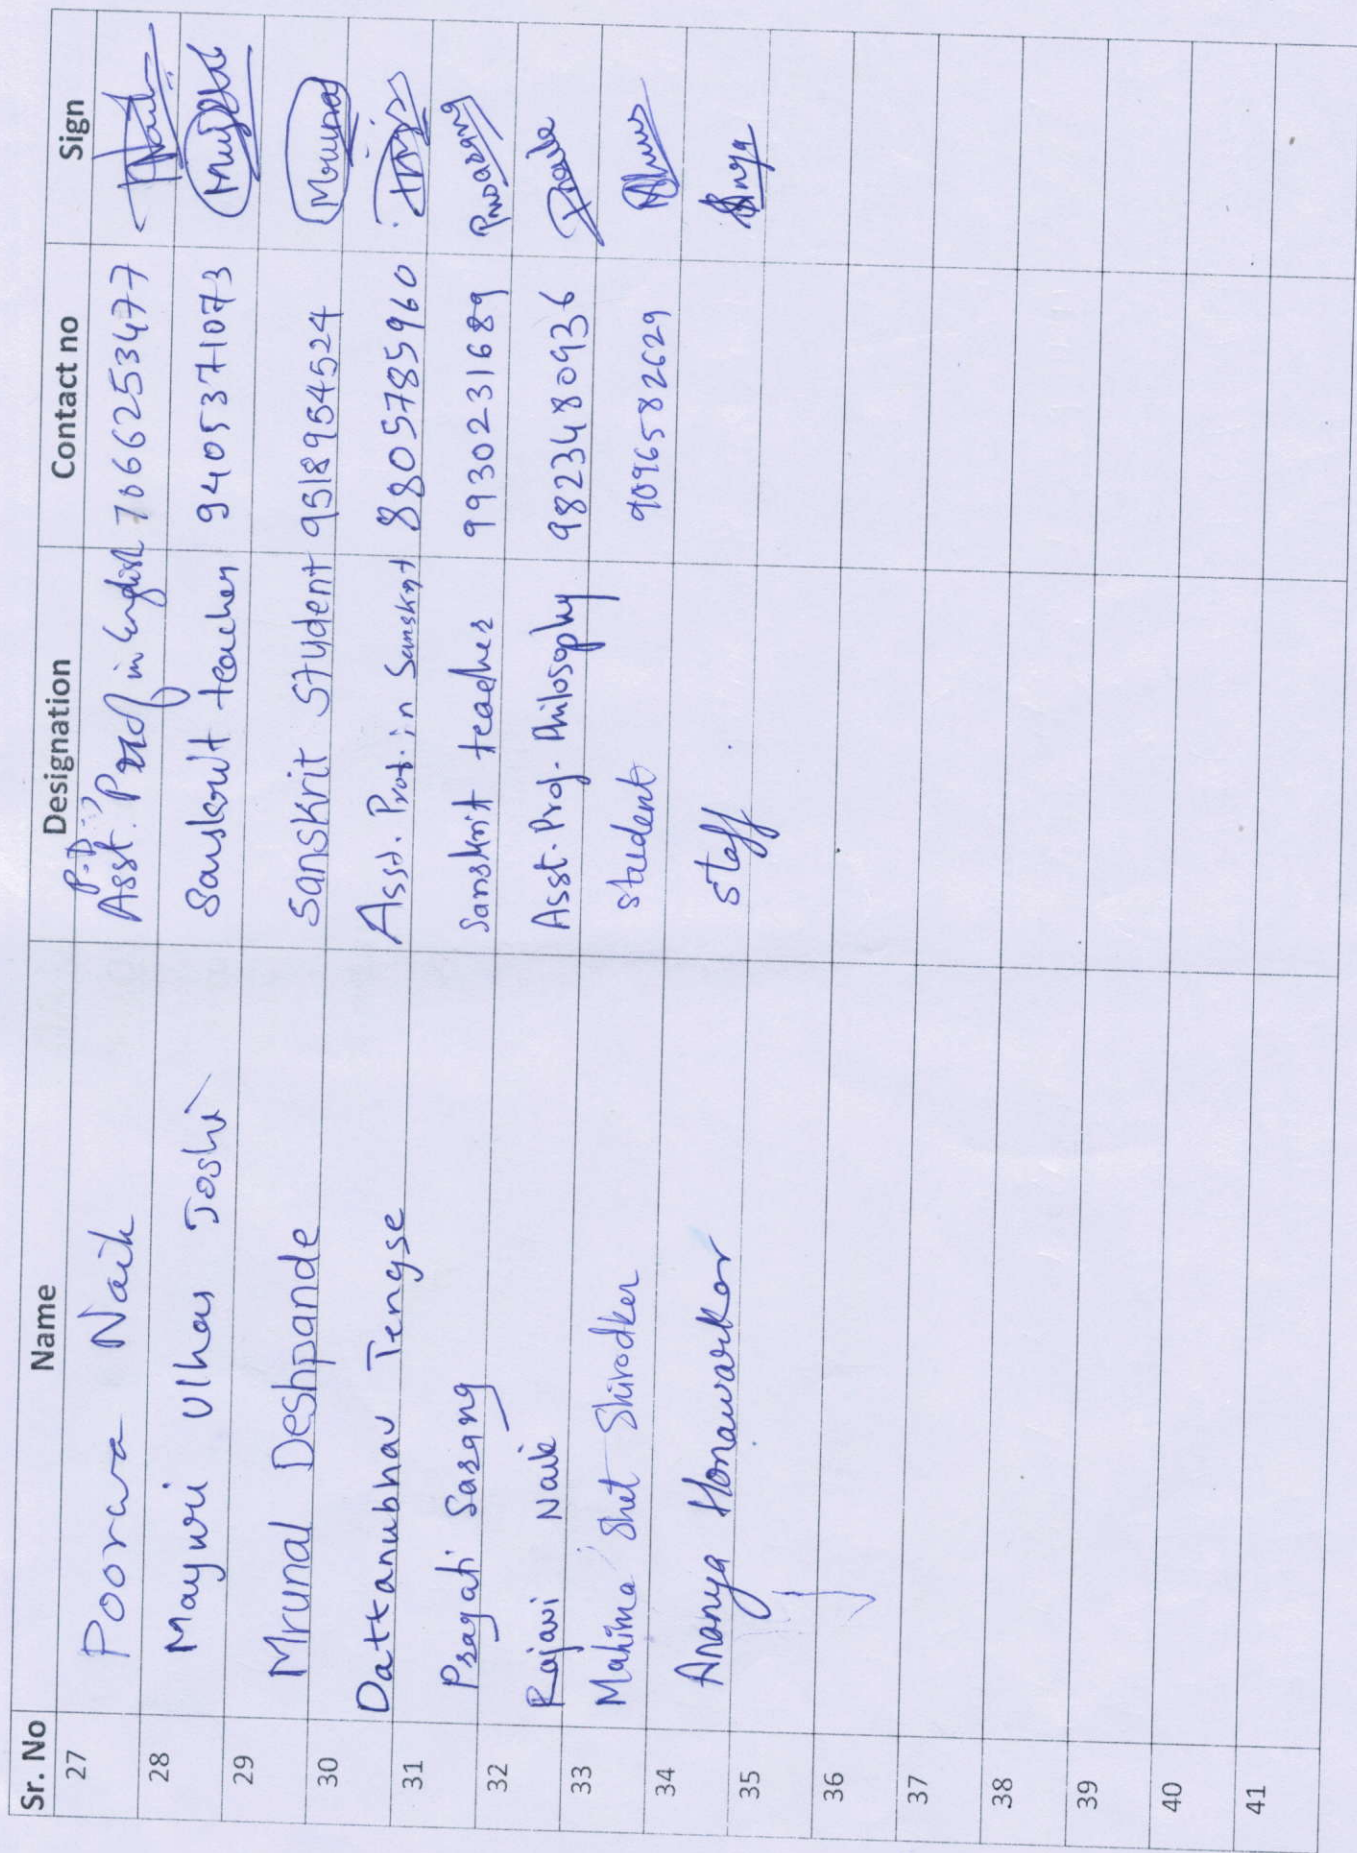 Sr. No Name Designation Contact no Sign
27 Poorva Naik P.D. Asst. Prof in English 7066253477 Naik
28 Mayuri Ulhas Joshi Sanskrit teacher 9405371073
29 Mrunal Deshpande Sanskrit Student 9518954524 Mrunal
30 Dattanubhav Tengse Asst. Prof. in Sanskrit 8805785960
31 Pragati Sarang Sanskrit teacher 9930231689
32 Rajavi Naik Asst. Prof. Philosophy 9823480936
33 Mahima Shet Shirodker student 9096582629
34 Ananya Honawarkar staff
35
36
37
38
39
40
41